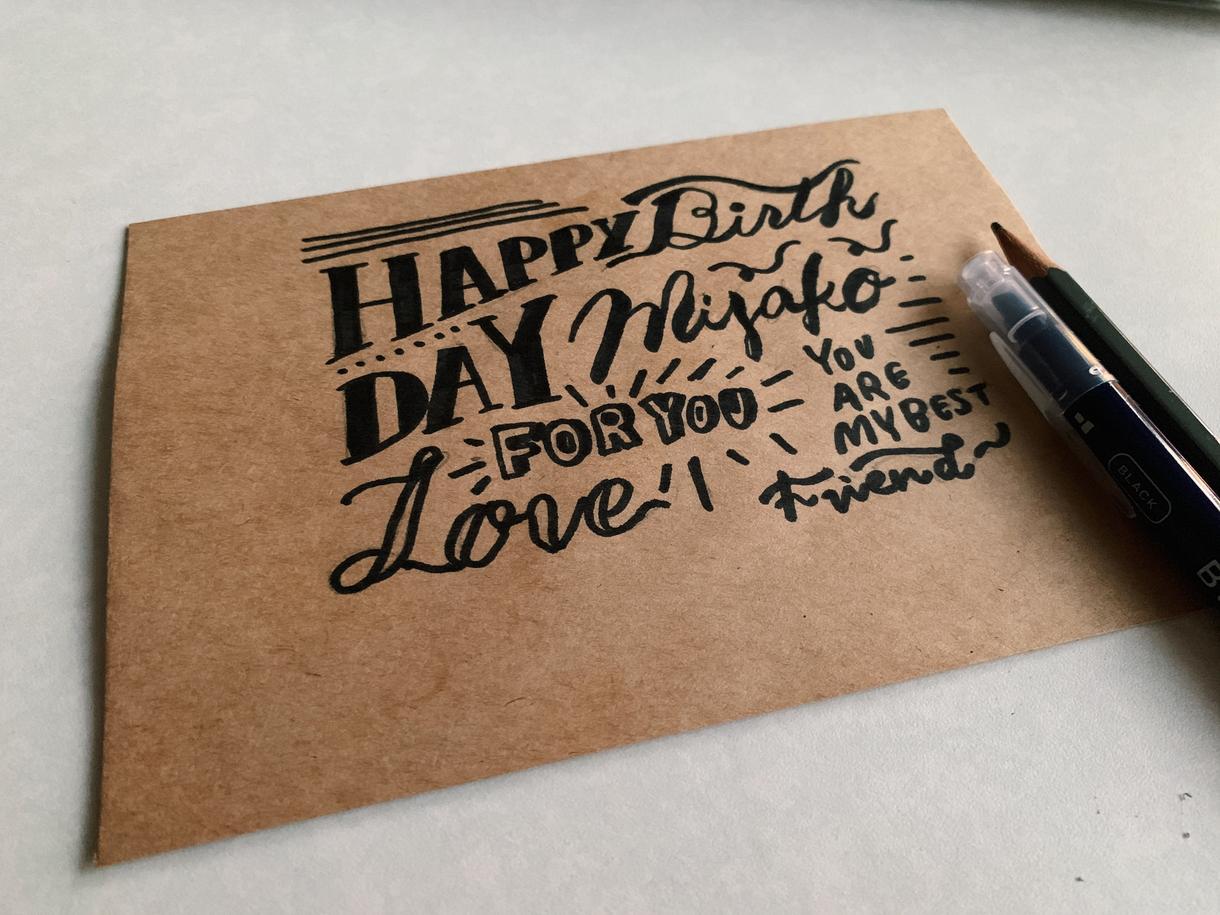 HAPPY Birth
DAY Mizako
FOR YOU
Love
YOU
ARE
MY BEST
Friend
BLACK